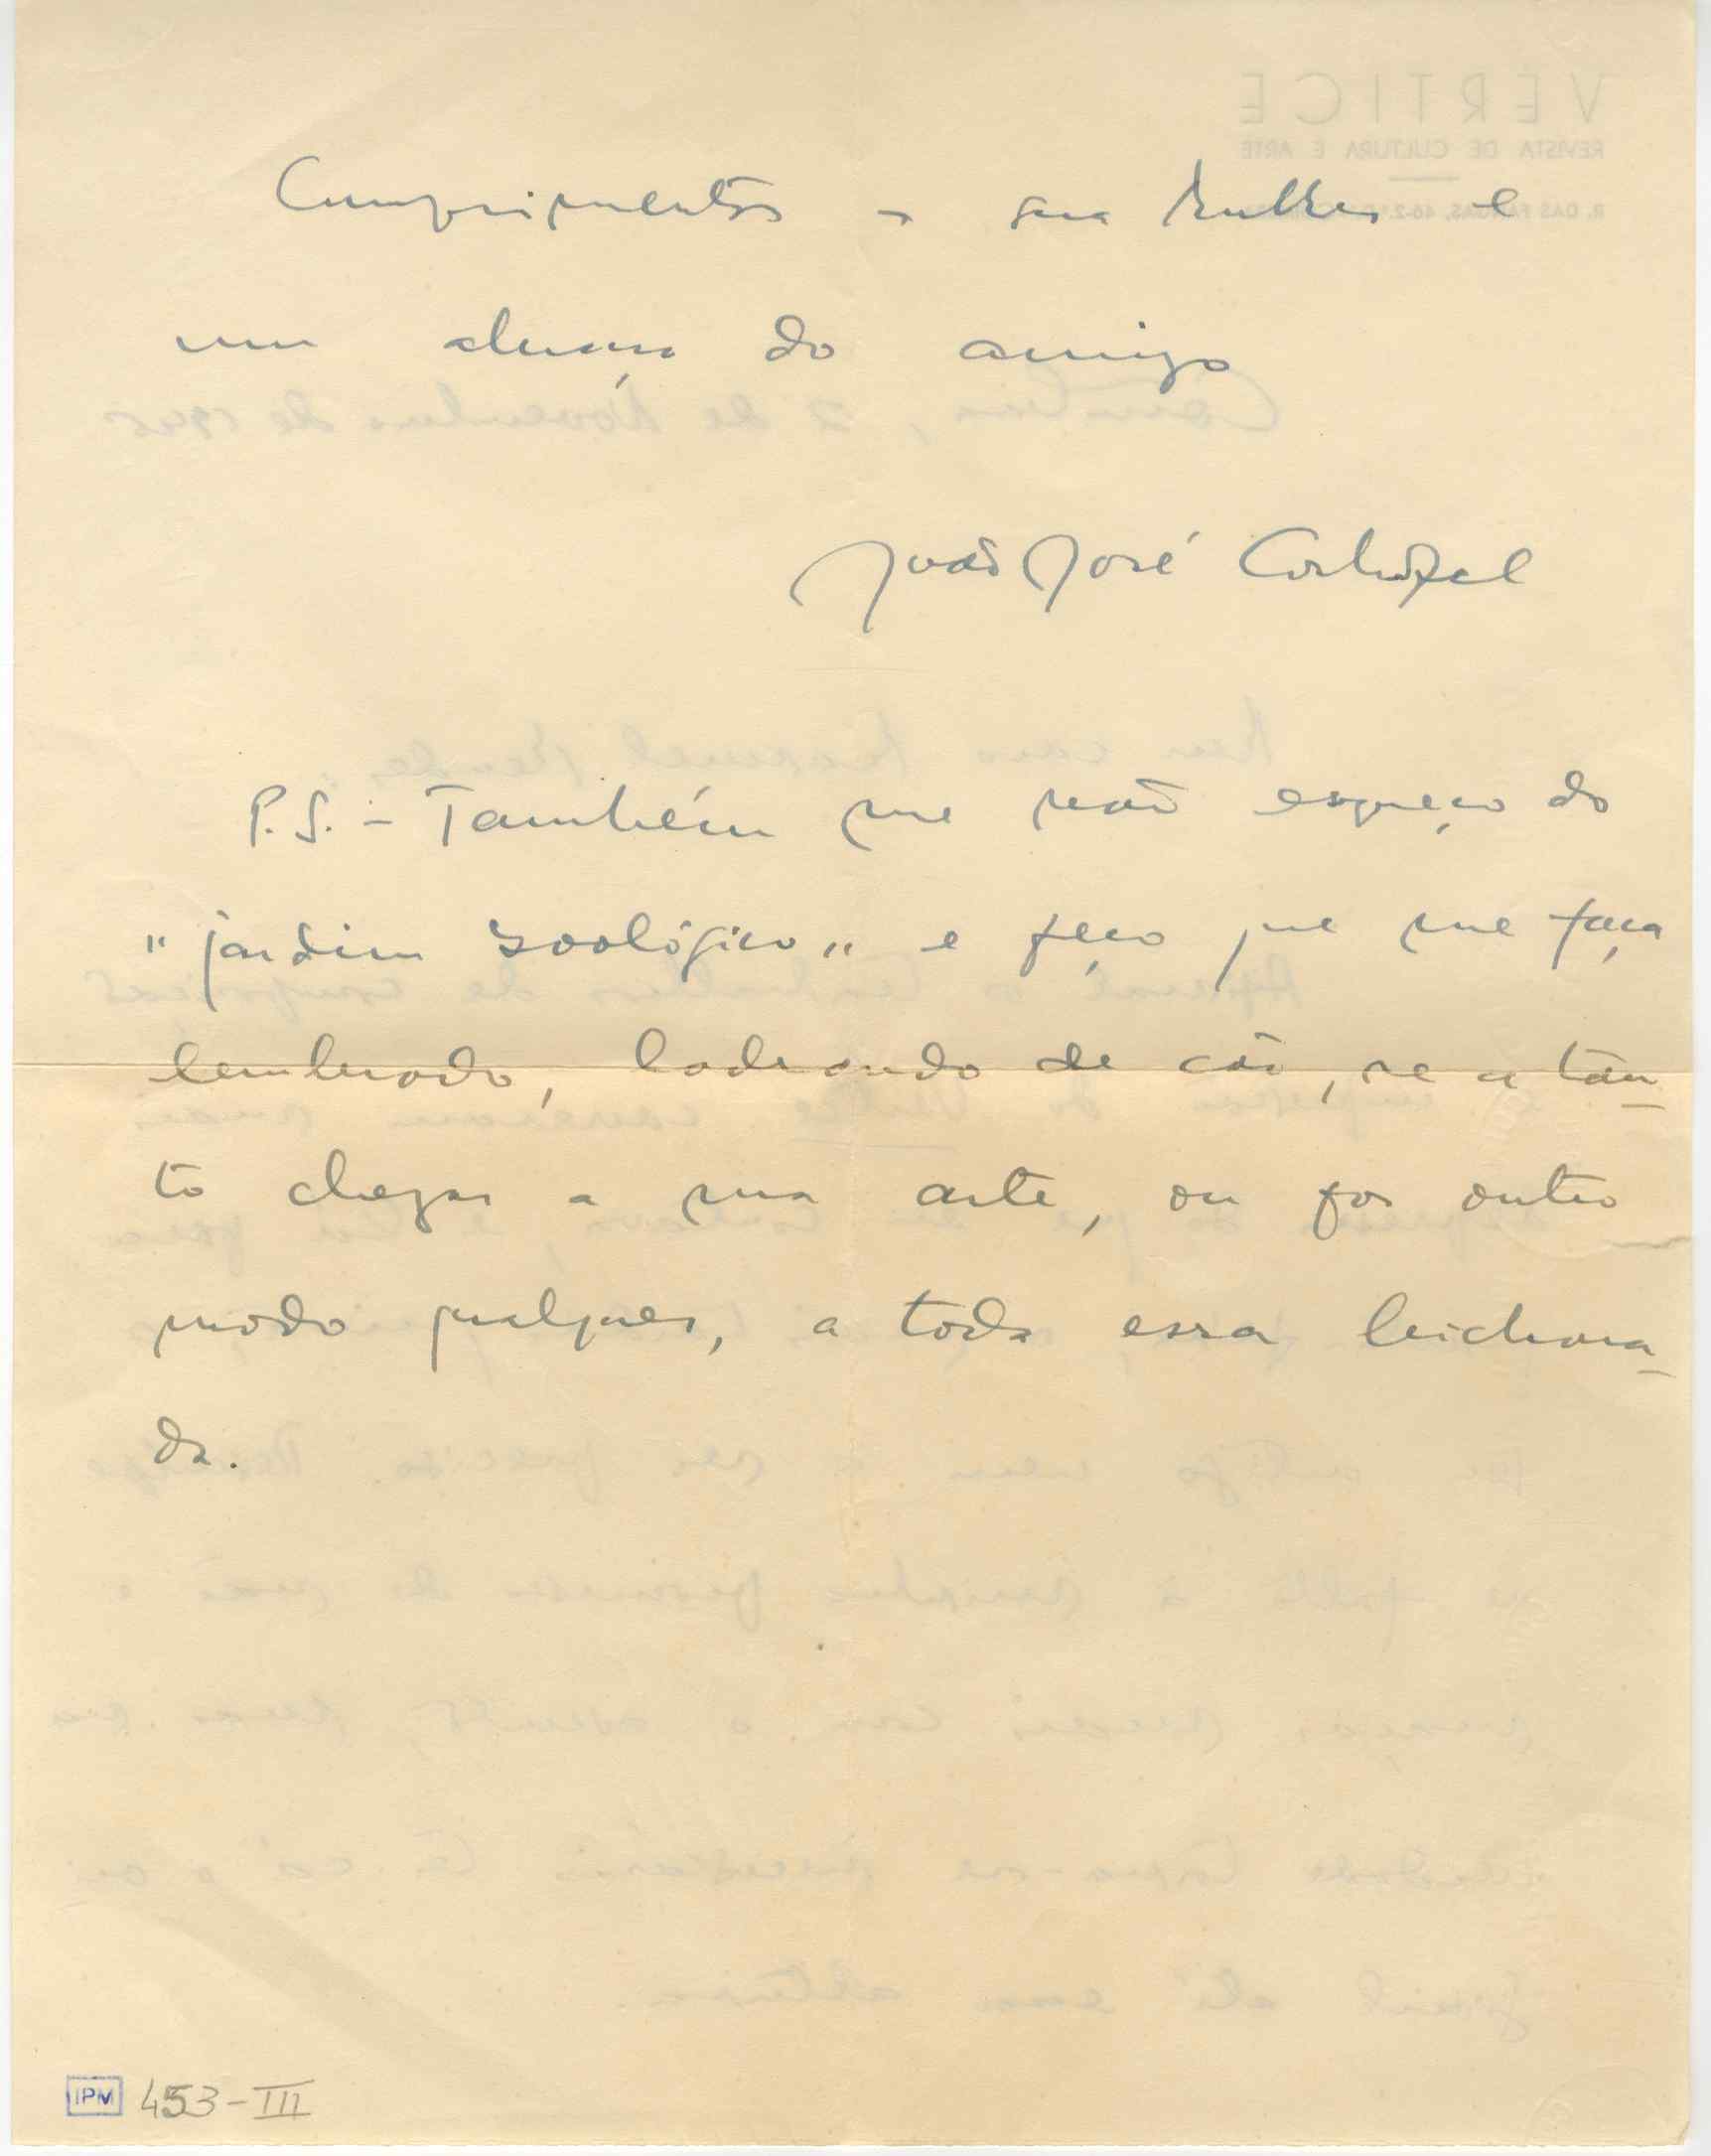 Cumprimentos a sua Mulher e
um abraço do amigo
João José Cochofel
P.S. - Também me não esqueço do
"jardim zoológico" e peço que me faça
lembrado, ladrando de cão, se a tan-
to chegar a sua arte, ou por outro
modo qualquer, a toda essa bichara-
da.
IPM 453-III